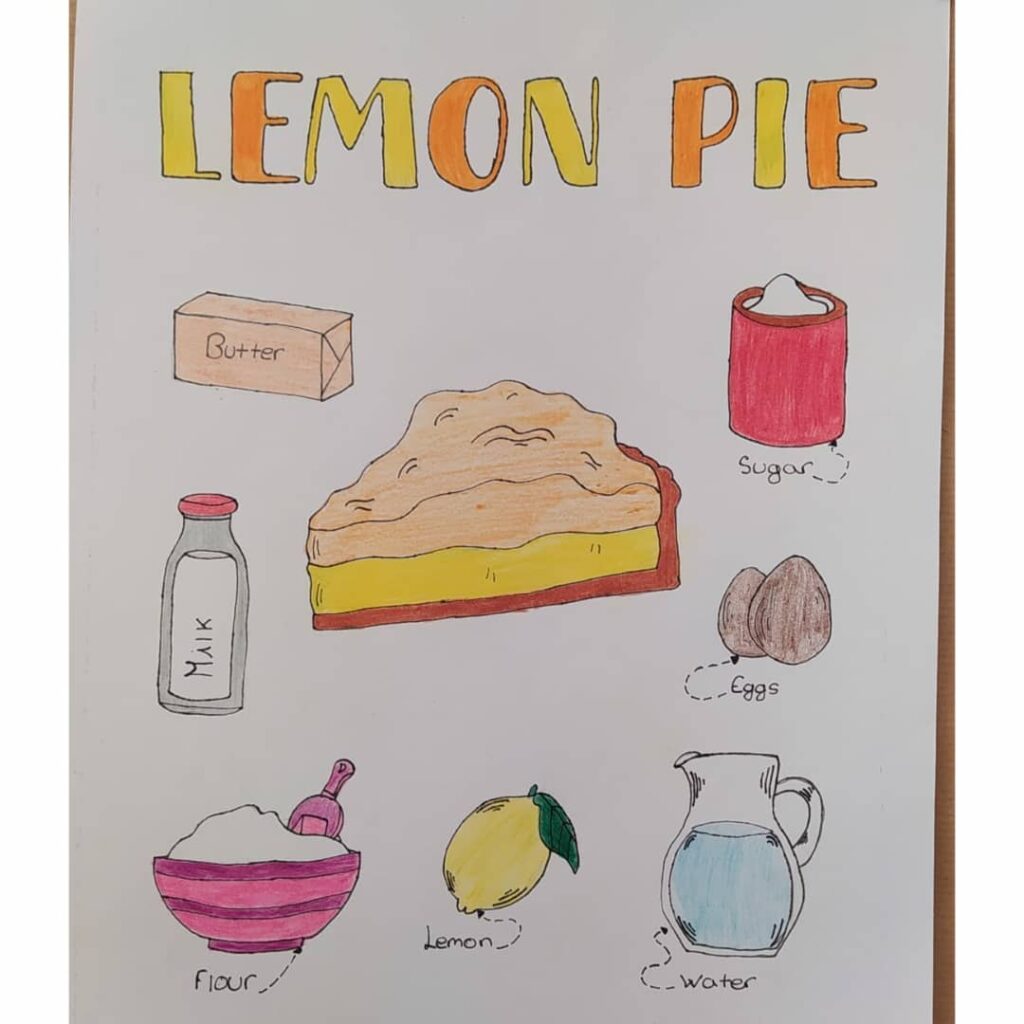 LEMON PIE
Butter
Sugar
Milk
Eggs
Flour
Lemon
Water